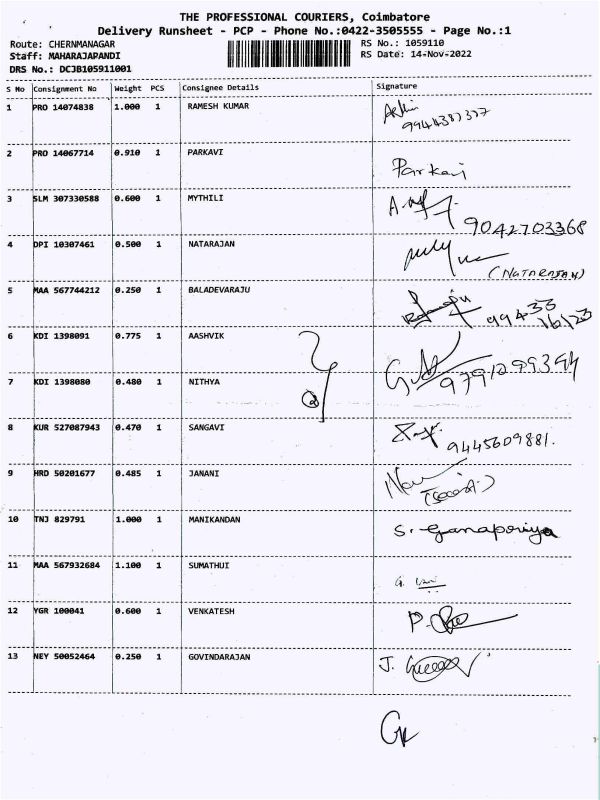 THE PROFESSIONAL COURIERS, Coimbatore
Delivery Runsheet - PCP - Phone No.:0422-3505555 - Page No.:1
Route: CHERNMANAGAR RS No.: 1059110
Staff: MAHARAJAPANDI RS Date: 14-Nov-2022
DRS No.: DCJB105911001
S No Consignment No Weight PCS Consignee Details Signature
1 PRO 14074838 1.000 1 RAMESH KUMAR
9944387377
2 PRO 14067714 0.910 1 PARKAVI
Parkavi
3 SLM 307330588 0.600 1 MYTHILI
9042703368
4 DPI 10307461 0.500 1 NATARAJAN
(NATARAJAN)
5 MAA 567744212 0.250 1 BALADEVARAJU
99433
16123
6 KDI 1398091 0.775 1 AASHVIK
9791299394
7 KDI 1398080 0.480 1 NITHYA
8 KUR 527087943 0.470 1 SANGAVI
9445609881.
9 HRD 50201677 0.485 1 JANANI
10 TNJ 829791 1.000 1 MANIKANDAN
S. Ganaporiya
11 MAA 567932684 1.100 1 SUMATHUI
12 YGR 100041 0.600 1 VENKATESH
13 NEY 50052464 0.250 1 GOVINDARAJAN